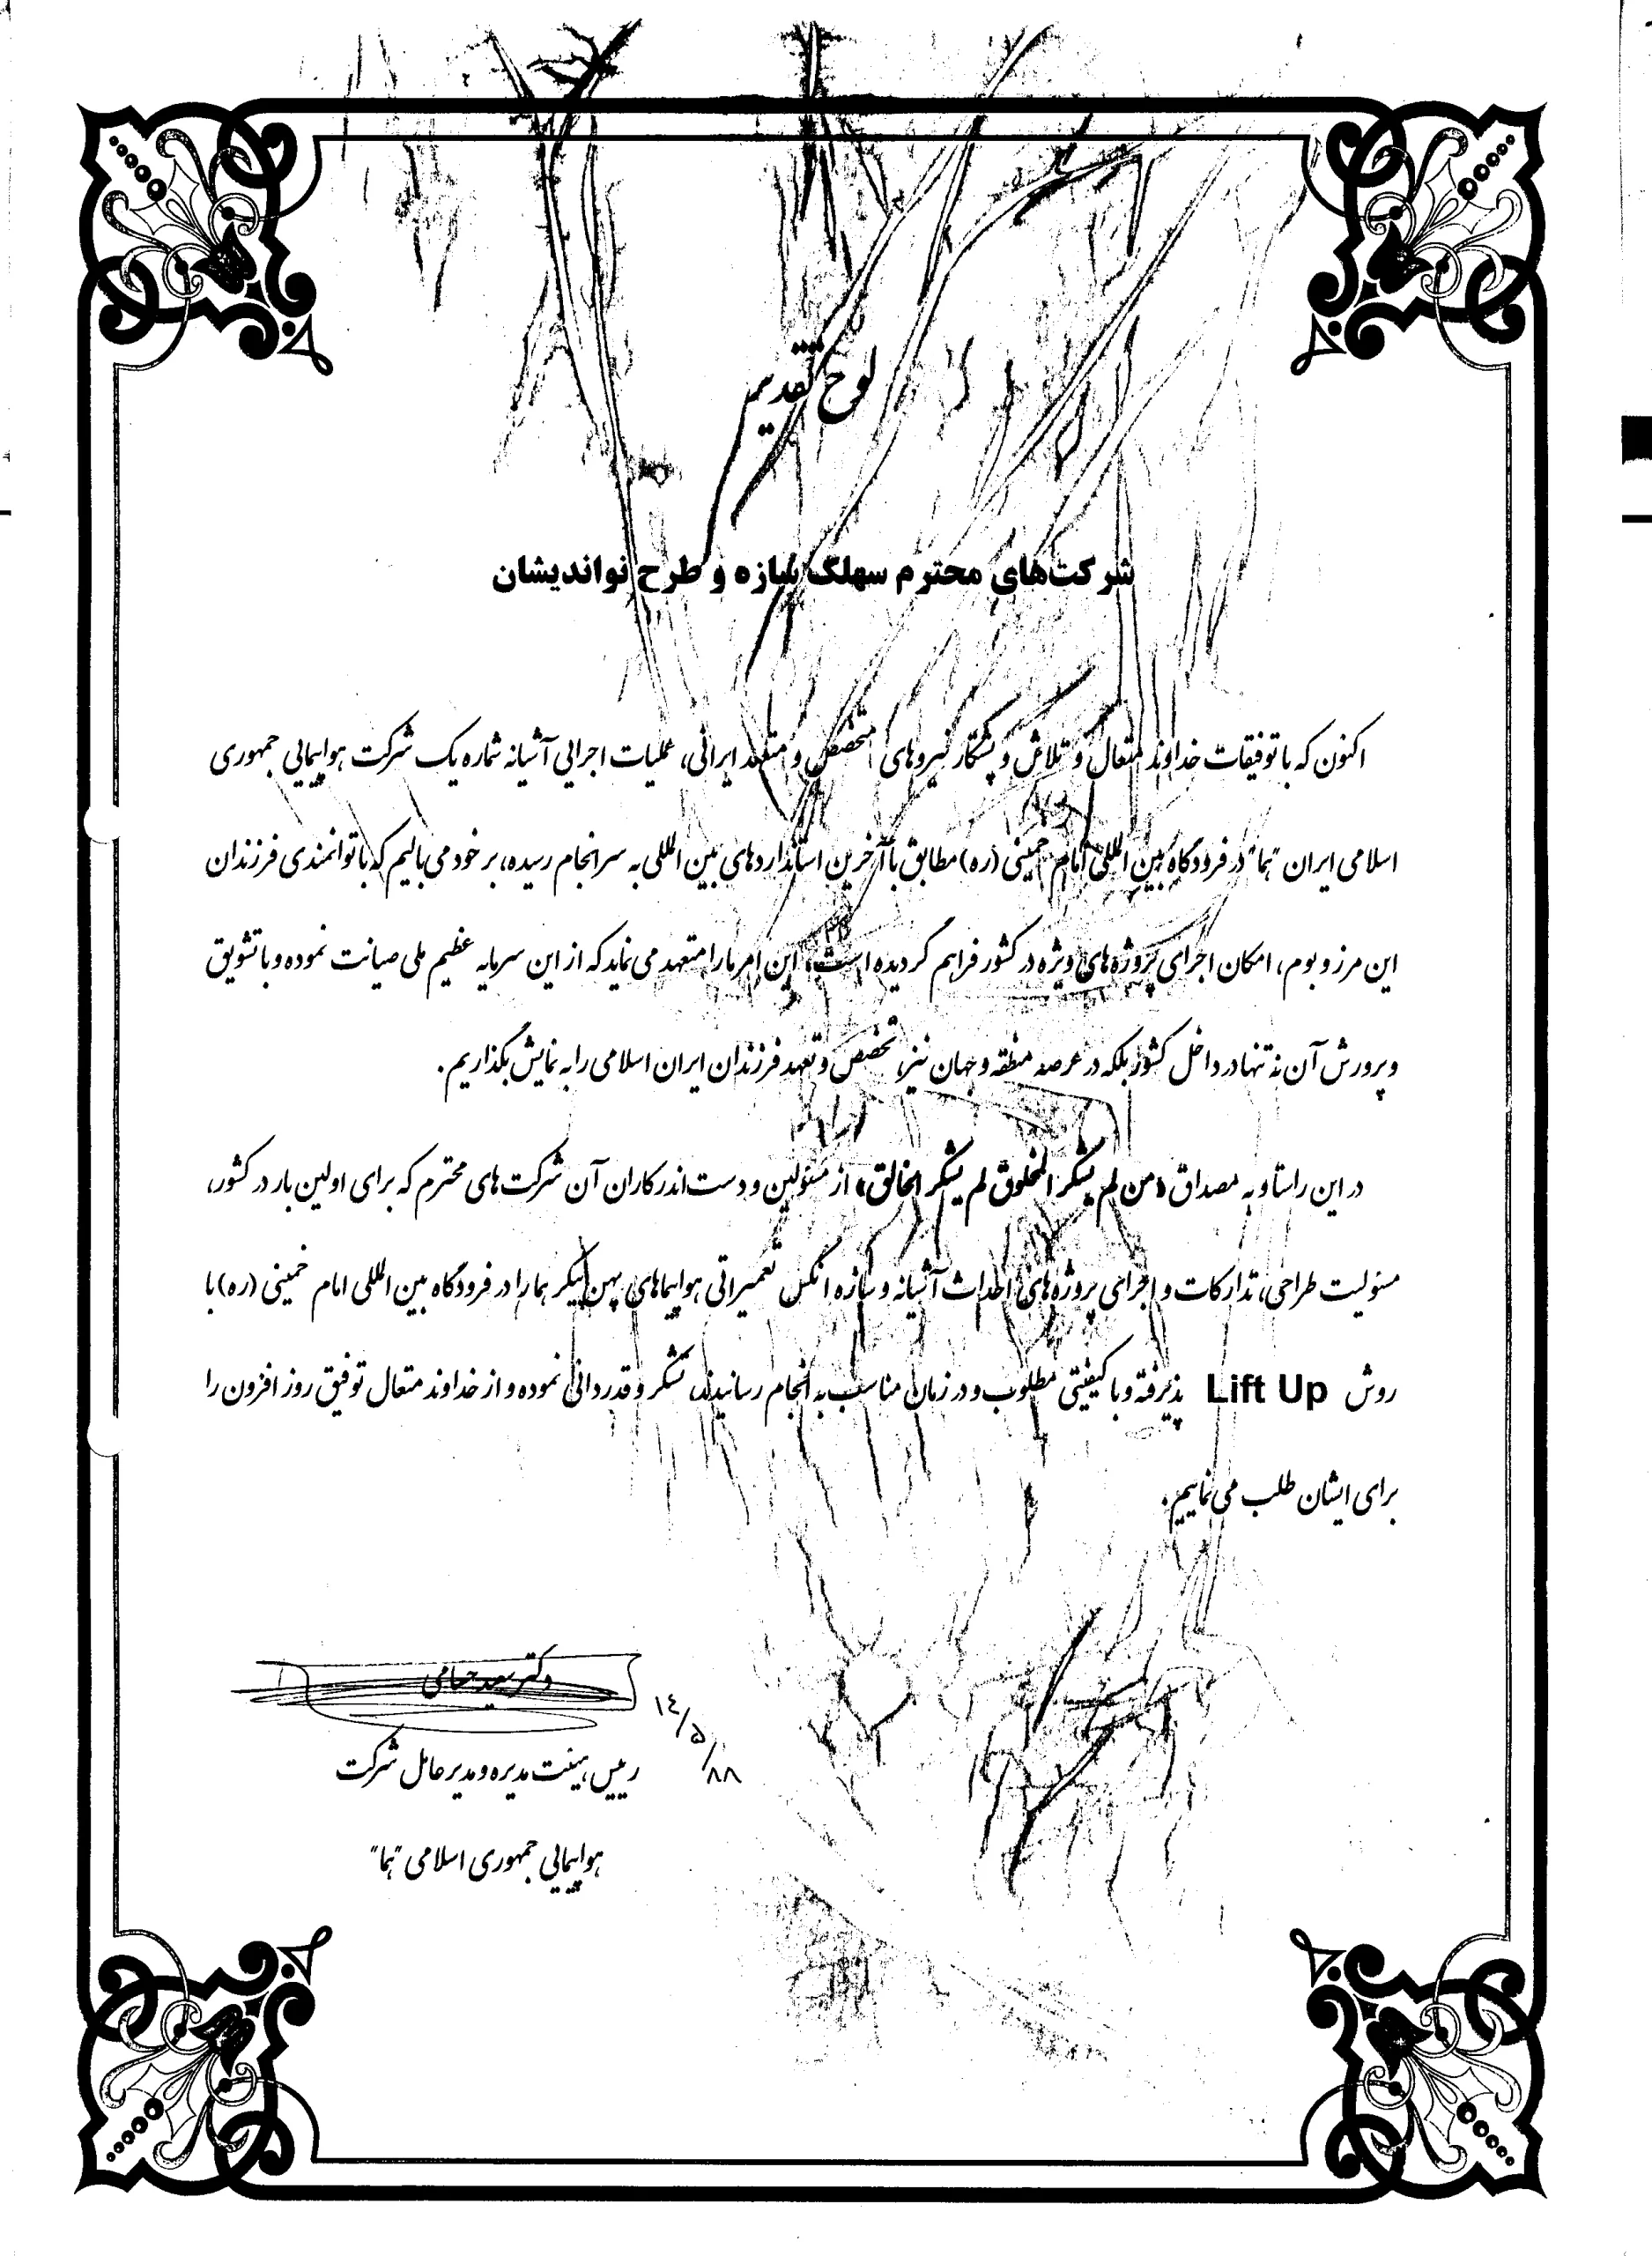 لوح تقدیر
شرکت‌های محترم سهلک سازه و طرح نواندیشان
اکنون که با توفیقات خداوند متعال و تلاش و پشتکار نیروهای متخصص و متعهد ایرانی، عملیات اجرایی آشیانه شماره یک شرکت هواپیمایی جمهوری
اسلامی ایران "هما" در فرودگاه بین المللی امام خمینی (ره) مطابق با آخرین استانداردهای بین المللی به سرانجام رسیده، بر خود می‌بالیم که با توانمندی فرزندان
این مرز و بوم، امکان اجرای پروژه‌های ویژه در کشور فراهم گردیده است، این امر ما را متعهد می‌نماید که از این سرمایه عظیم ملی صیانت نموده و با تشویق
و پرورش آن نه تنها در داخل کشور بلکه در عرصه منطقه و جهان نیز، تخصص و تعهد فرزندان ایران اسلامی را به نمایش بگذاریم.
در این راستا و به مصداق «من لم یشکر المخلوق لم یشکر الخالق» از مسئولین و دست‌اندرکاران آن شرکت‌های محترم که برای اولین بار در کشور،
مسئولیت طراحی، تدارکات و اجرای پروژه‌های احداث آشیانه و سازه انگس تعمیراتی هواپیماهای پهن پیکر هما را در فرودگاه بین المللی امام خمینی (ره) با
روش Lift Up پذیرفته و با کیفیتی مطلوب و در زمان مناسب به انجام رسانیدند، تشکر و قدردانی نموده و از خداوند متعال توفیق روز افزون را
برای ایشان طلب می‌نماییم.
دکتر سعید حسامی
۱٤/۵/۸۸
رییس هیئت مدیره و مدیر عامل شرکت
هواپیمایی جمهوری اسلامی "هما"